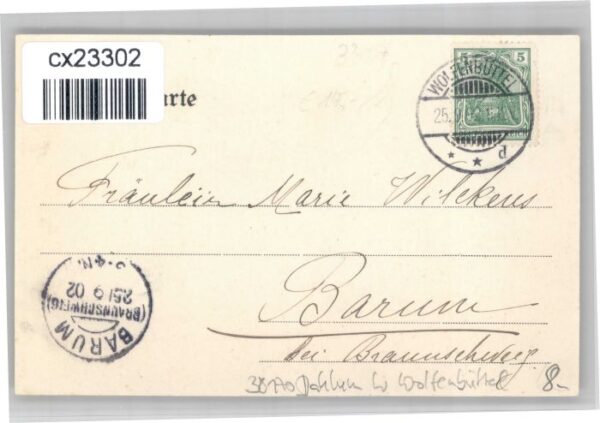 cx23302
arte
5 5
WOLFENBÜTTEL
25.9.
d
Fräulein Marie Wilckens
Barum
bei Braunschweig
BARUM
(BRAUNSCHWEIG)
25/9 02
3-4N.
Wolfenbüttel 8-